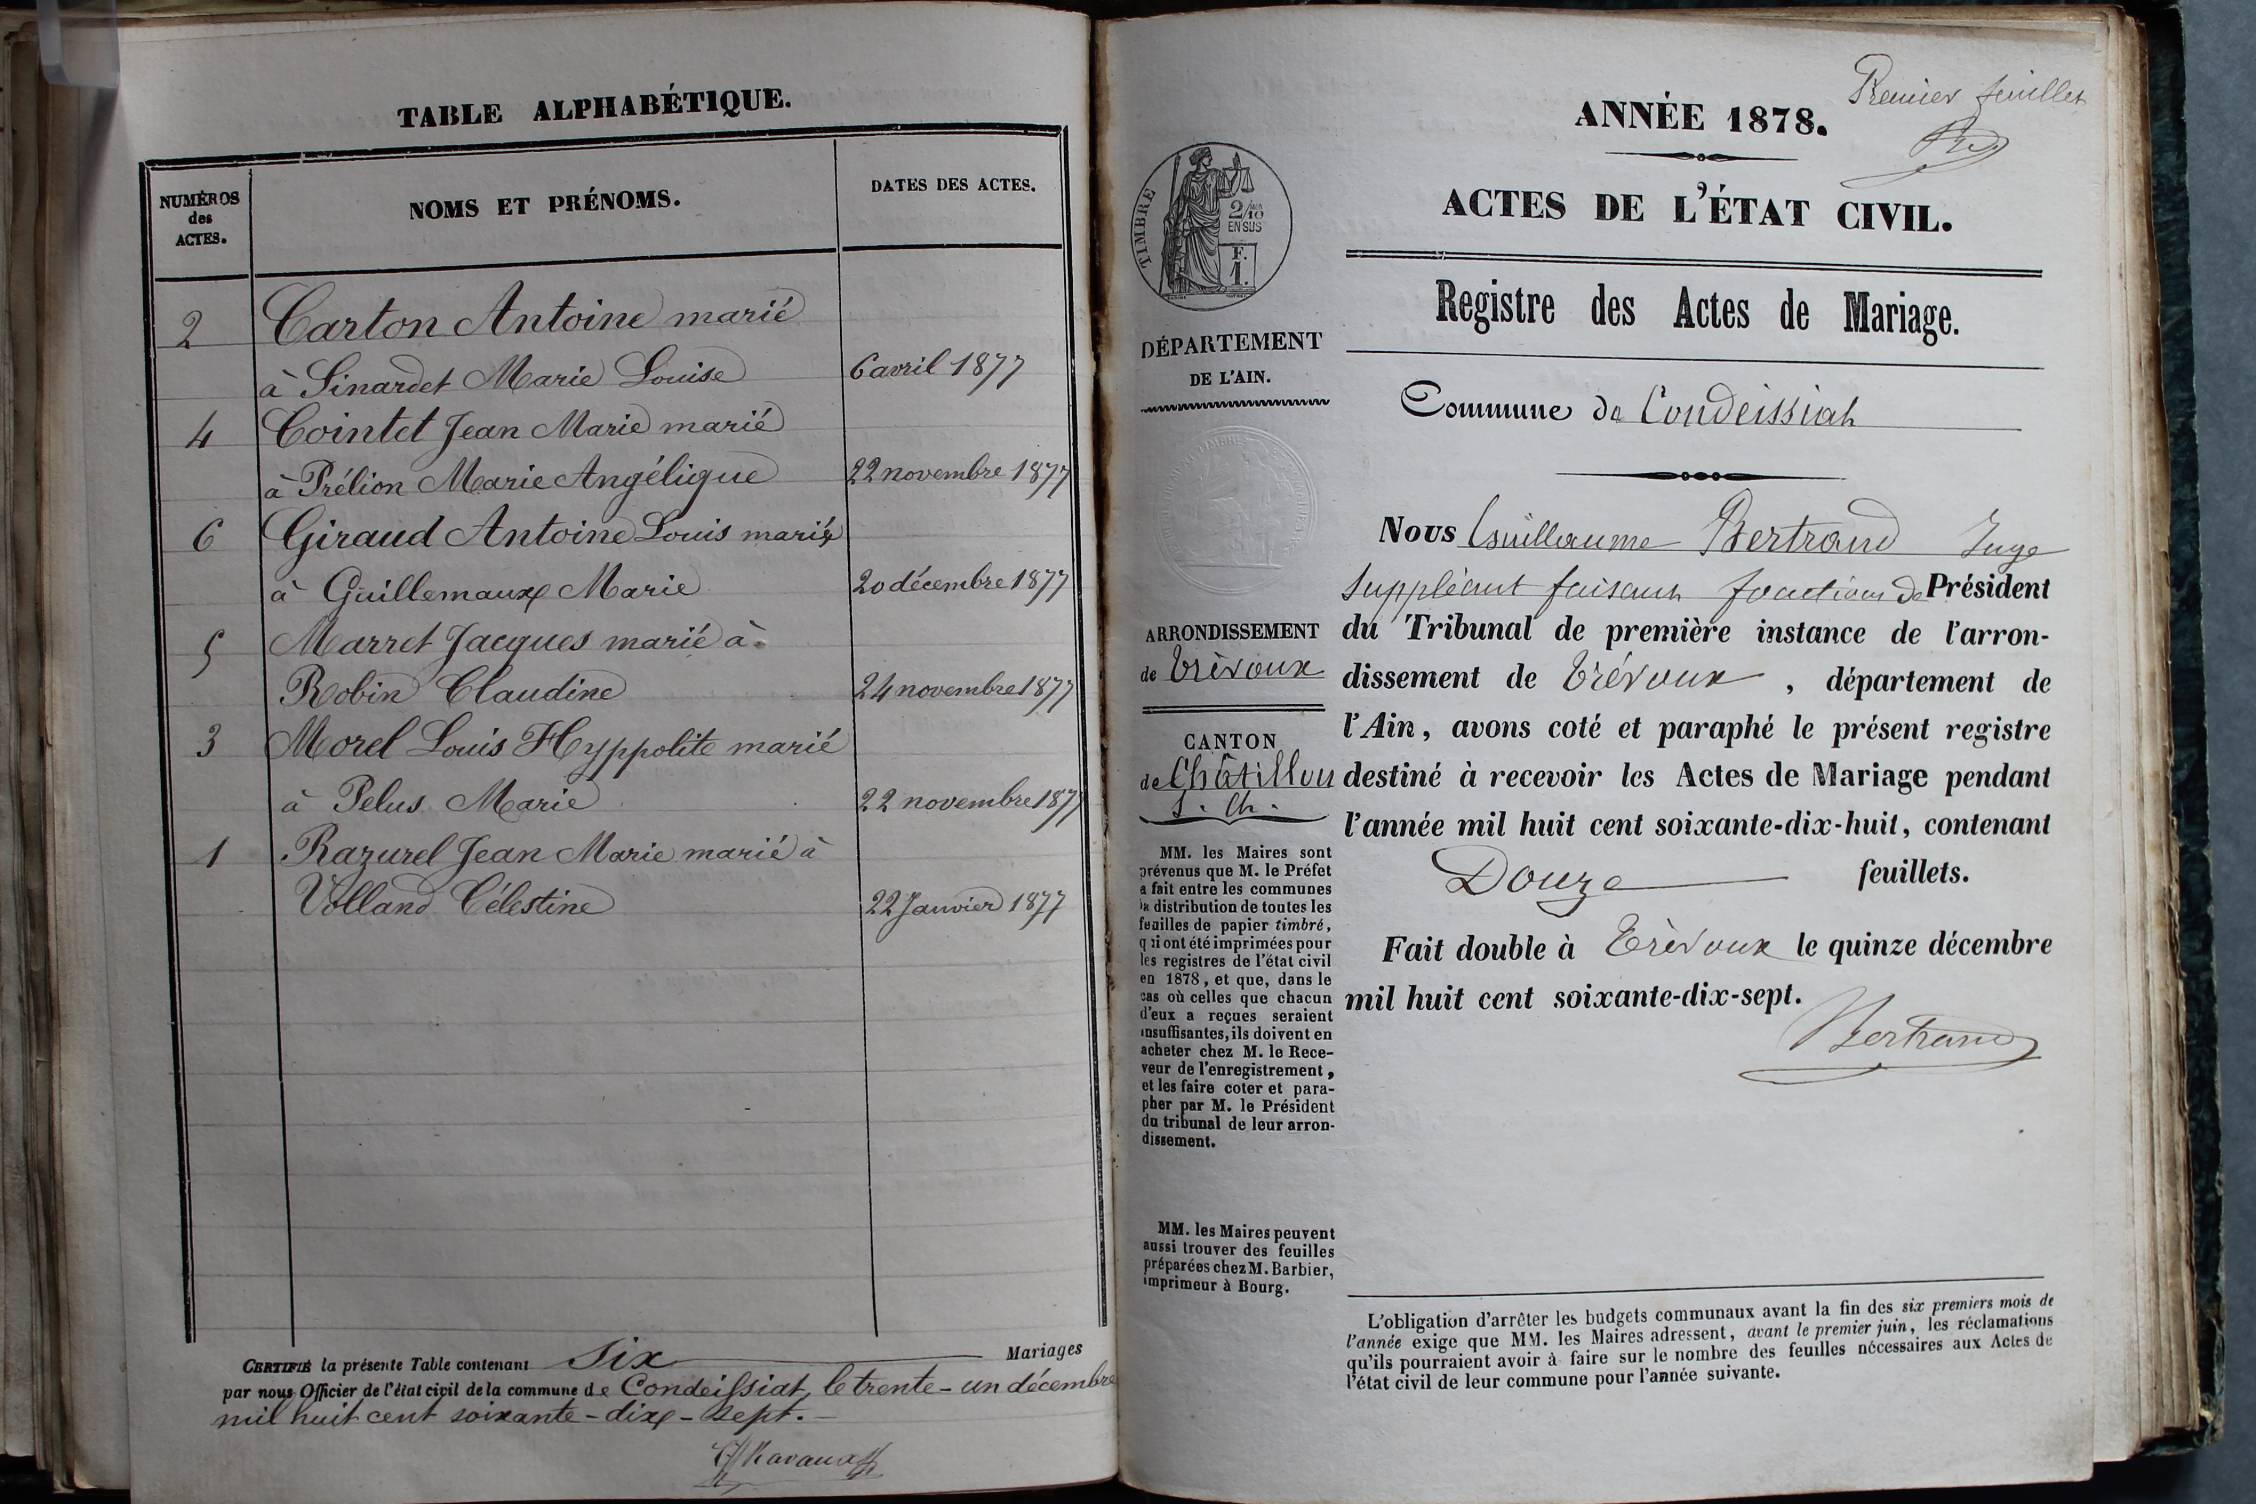 TABLE ALPHABÉTIQUE.
NUMÉROS
des
ACTES.
NOMS ET PRÉNOMS.
DATES DES ACTES.
2 Carton Antoine marié
à Sinardet Marie Louise 6 avril 1877
4 Cointet Jean Marie marié
à Prélion Marie Angélique 22 novembre 1877
6 Giraud Antoine Louis marié
à Guillemaux Marie 20 décembre 1877
5 Marret Jacques marié à
Robin Claudine 24 novembre 1877
3 Morel Louis Hyppolite marié
à Pelus Marie 22 novembre 1877
1 Razurel Jean Marie marié à
Volland Célestine 22 Janvier 1877
CERTIFIÉ la présente Table contenant Six Mariages
par nous Officier de l'état civil de la commune de Condeissiat, le trente-un décembre
mil huit cent soixante-dix-sept.
Premier feuillet
ANNÉE 1878.
ACTES DE L'ÉTAT CIVIL.
Registre des Actes de Mariage.
Commune de Condeissiat
TIMBRE
2/10
EN SUS
F.
1.
DÉPARTEMENT
DE L'AIN.
ARRONDISSEMENT
de Trévoux
CANTON
de Châtillon
s. Ch.
MM. les Maires sont
prévenus que M. le Préfet
a fait entre les communes
la distribution de toutes les
feuilles de papier timbré,
qui ont été imprimées pour
les registres de l'état civil
en 1878, et que, dans le
cas où celles que chacun
d'eux a reçues seraient
insuffisantes, ils doivent en
acheter chez M. le Rece-
veur de l'enregistrement,
et les faire coter et para-
pher par M. le Président
du tribunal de leur arron-
dissement.
MM. les Maires peuvent
aussi trouver des feuilles
préparées chez M. Barbier,
imprimeur à Bourg.
Nous Guillaume Bertrand Juge
suppléant faisant fonctions de Président
du Tribunal de première instance de l'arron-
dissement de Trévoux, département de
l'Ain, avons coté et paraphé le présent registre
destiné à recevoir les Actes de Mariage pendant
l'année mil huit cent soixante-dix-huit, contenant
Douze feuillets.
Fait double à Trévoux le quinze décembre
mil huit cent soixante-dix-sept.
Bertrand
L'obligation d'arrêter les budgets communaux avant la fin des six premiers mois de
l'année exige que MM. les Maires adressent, avant le premier juin, les réclamations
qu'ils pourraient avoir à faire sur le nombre des feuilles nécessaires aux Actes de
l'état civil de leur commune pour l'année suivante.